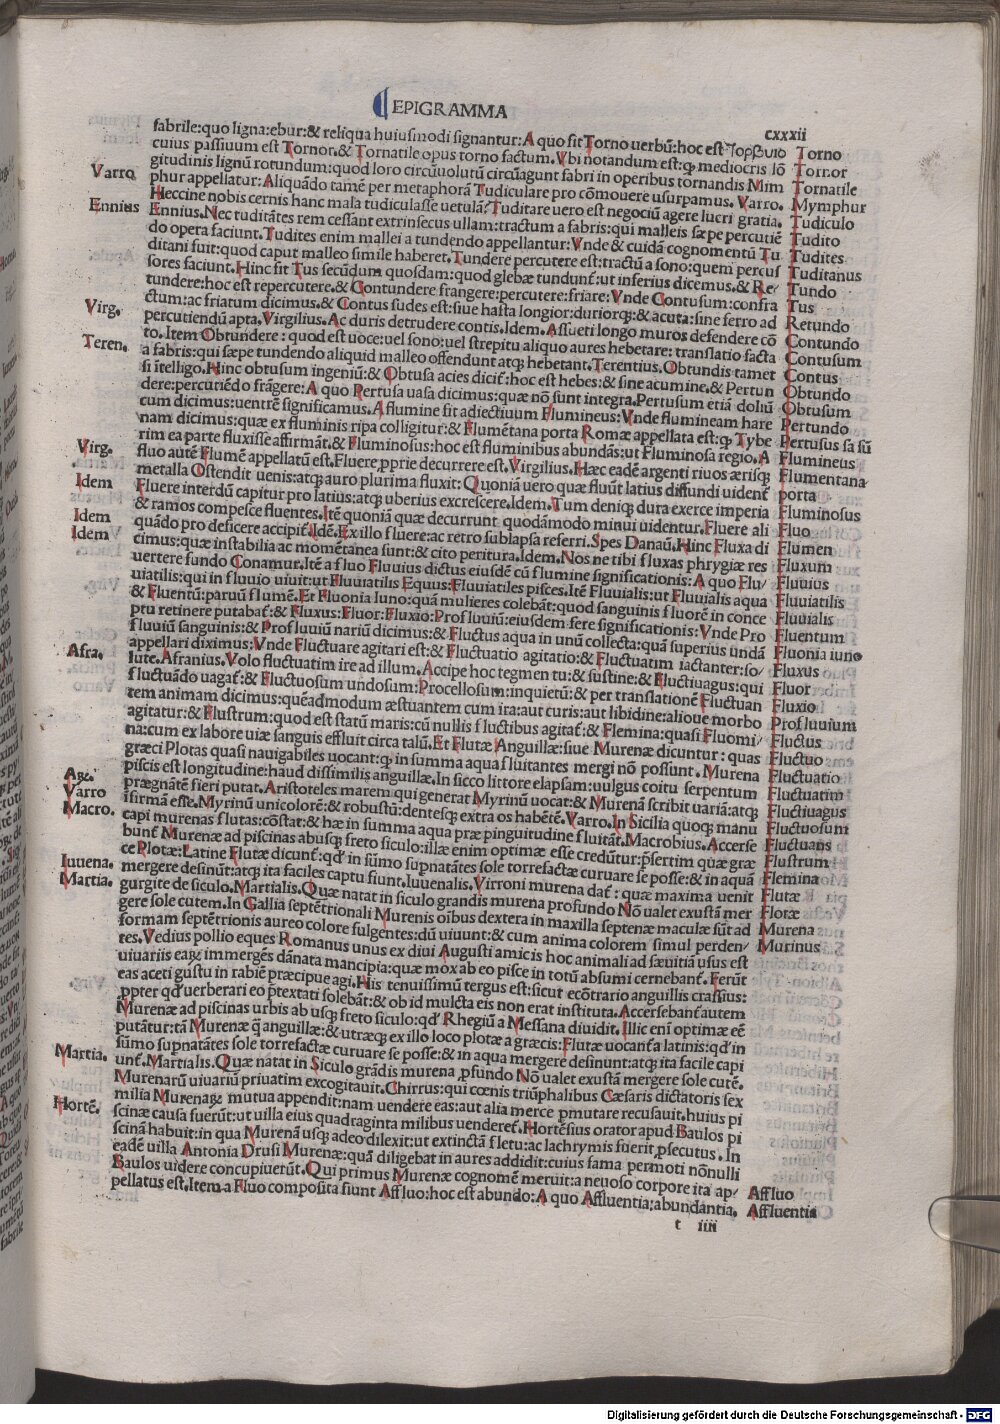 EPIGRAMMA
cxxxii
fabrile:quo ligna:ebur:& reliqua huiusmodi signantur:A quo fit Torno uerbũ:hoc est Torno
cuius passiuum est Tornor.& Tornatile opus torno factum.Vbi notandum est:ꝙ mediocris lõ Tornor
gitudinis lignũ rotundum:quod loro circũuolutũ circũagunt fabri in operibus tornandis Nim Tornatile
Varro phur appellatur:Aliquãdo tamẽ per metaphorã Tudiculare pro cõmouere usurpamus. Varro. Mymphur
Heccine nobis cernis hanc mala tudiculasse uetulã?Tuditare uero est negociũ agere lucri gratia. Tudiculo
Ennius Ennius.Nec tuditãtes rem cessant extrinsecus ullam:tractum a fabris:qui malleis sæpe percutiẽ Tudito
do opera faciunt.Tudites enim mallei a tundendo appellantur:Vnde & cuidã cognomentũ Tu Tudites
ditani fuit:quod caput malleo simile haberet.Tundere percutere est:tractũ a sono:quem percus Tuditanus
sores faciunt.Hinc fit Tus secũdum quosdam:quod glebæ tundunt᷑:ut inferius dicemus.& Re- Tundo
tundere:hoc est repercutere.& Contundere frangere:percutere:friare:Vnde Contusum:confra Tus
Virg. ctum:ac friatum dicimus.& Contus sudes est:siue hasta longior:duriorq;:& acuta:sine ferro ad Retundo
percutiendũ apta.Virgilius.Ac duris detrudere contis.Idem.Assueti longo muros defendere cõ Contundo
to.Item Obtundere:quod est uoce:uel sono:uel strepitu aliquo aures hebetare:translatio facta Contusum
Teren. a fabris:qui sæpe tundendo aliquid malleo offendunt atq; hebetant.Terentius.Obtundis tamet Contus
si ĩtelligo.Hinc obtusum ingeniũ:& Obtusa acies dicit᷑:hoc est hebes:& sine acumine.& Pertun Obtundo
dere:percutiẽdo frãgere:A quo Pertusa uasa dicimus:quæ nõ sunt integra.Pertusum etiã doliũ Obtusum
cum dicimus:uentrẽ significamus.A flumine fit adiectiuum Flumineus:Vnde flumineam hare Pertundo
nam dicimus:quæ ex fluminis ripa colligitur:& Flumẽtana porta Romæ appellata est:ꝙ Tybe Pertusus sa sũ
rim ea parte fluxisse affirmãt.& Fluminosus:hoc est fluminibus abundãs:ut Fluminosa regio.A Flumineus
Virg. fluo autẽ Flumẽ appellatũ est.Fluere ꝓprie decurrere est.Virgilius.Hæc eadẽ argenti riuos ærisq; Flumentana
metalla Ostendit uenis:atq; auro plurima fluxit:Quoniã uero quæ fluũt latius diffundi uident᷑ porta
Idem Fluere interdũ capitur pro latius:atq; uberius excrescere.Idem.Tum deniq; dura exerce imperia Fluminosus
& ramos compesce fluentes.Itẽ quoniã quæ decurrunt quodãmodo minui uidentur.Fluere ali Fluo
Idem quãdo pro deficere accipit᷑.Idẽ.Ex illo fluere:ac retro sublapsa referri.Spes Danaũ.Hinc Fluxa di Flumen
Idem cimus:quæ instabilia ac momẽtanea sunt:& cito peritura.Idem.Nos ne tibi fluxas phrygiæ res Fluxum
uertere fundo Conamur.Itẽ a fluo Fluuius dictus eiusdẽ cũ flumine significationis:A quo Flu- Fluuius
uiatilis:qui in fluuio uiuit:ut Fluuiatilis Equus:Fluuiatiles pisces.Itẽ Fluuialis:ut Fluuialis aqua Fluuiatilis
& Fluentũ:paruũ flumẽ.Et Fluonia Iuno:quã mulieres colebãt:quod sanguinis fluorẽ in conce Fluuialis
ptu retinere putabat᷑:& Fluxus:Fluor:Fluxio:Profluuiũ:eiusdem fere significationis:Vnde Pro Fluentum
fluuiũ sanguinis:& Profluuii nariũ dicimus:& Fluctus aqua in unũ collecta:quã superius undã Fluonia iuno
appellari diximus:Vnde Fluctuare agitari est:& Fluctuatio agitatio:& Fluctuatim iactanter:so- Fluxus
Afra. lute.Afranius.Volo fluctuatim ire ad illum.Accipe hoc tegmen tu:& sustine:& Fluctiuagus:qui Fluor
fluctuãdo uagat᷑:& Fluctuosum undosum:Procellosum:inquietũ:& per translationẽ Fluctuan Fluxio
tem animam dicimus:quẽadmodum æstuantem cum ira:aut curis:aut libidine:alioue morbo Profluuium
agitatur:& Flustrum:quod est statũ maris:cũ nullis fluctibus agitat᷑:& Flemina:quasi Fluomi- Fluctus
na:cum ex labore uiæ sanguis effluit circa talũ.Et Flutæ Anguillæ:siue Murenæ dicuntur:quas Fluctuo
græci Plotas quasi nauigabiles uocant:ꝙ in summa aqua fluitantes mergi nõ possunt.Murena Fluctuatio
piscis est longitudine:haud dissimilis anguillæ.In sicco littore elapsam:uulgus coitu serpentum Fluctuatim
prægnãtẽ fieri putat.Aristoteles marem:qui generat Myrinũ uocat:& Murenã scribit uariã:atq; Fluctiuagus
Varro ĩfirmã esse.Myrinũ unicolorẽ:& robustũ:dentesq; extra os habẽtẽ.Varro.In Sicilia quoq; manu Fluctuosum
Macro. capi murenas flutas:cõstat:& hæ in summa aqua præ pinguitudine fluitãt.Macrobius.Accerse Fluctuans
bunt᷑ Murenæ ad piscinas abusq; freto siculo:illæ enim optimæ esse credũtur:ꝑsertim quæ græ Flustrum
ce Plotæ:Latine Flutæ dicunt᷑:qd’ in sũmo supnatãtes sole torrefactæ curuare se posse:& in aquã Flemina
Iuuena. mergere desinũt:atq; ita faciles captu fiunt.Iuuenalis.Virroni murena dat᷑:quæ maxima uenit Flutæ
Martia. gurgite de siculo.Martialis.Quæ natat in siculo grandis murena profundo Nõ ualet exustã mer Flotæ
gere sole cutem.In Gallia septẽtrionali Murenis oĩbus dextera in maxilla septenæ maculæ sũt ad Murena
formam septẽtrionis aureo colore fulgentes:dũ uiuunt:& cum anima colorem simul perden- Murinus
tes.Vedius pollio eques Romanus unus ex diui Augusti amicis hoc animali ad sæuitiã usus est
uiuariis eaꝝ immergẽs dãnata mancipia:quæ mox ab eo pisce in totũ absumi cernebant᷑.Ferũt
eas aceti gustu in rabiẽ præcipue agi.His tenuissimũ tergus est:sicut ecõtrario anguillis crassius:
ꝓpter qd’ uerberari eo ꝑtextati solebãt:& ob id mulcta eis non erat instituta.Accersebant᷑ autem
Murenæ ad piscinas urbis ab usq; freto siculo:qd’ Rhegiũ a Messana diuidit.Illic enĩ optimæ eẽ
putãtur:tã Murenæ q̃ anguillæ:& utræq; ex illo loco plotæ a græcis:Flutæ uocant᷑ a latinis:qd’ in
sũmo supnatãtes sole torrefactæ curuare se posse:& in aqua mergere desinunt:atq; ita facile capi
Martia. unt᷑.Martialis.Quæ natat in Siculo grãdis murena ꝓfundo Nõ ualet exustã mergere sole cutẽ.
Murenarũ uiuariũ priuatim excogitauit.Chirrus:qui cœnis triũphalibus Cæsaris dictatoris sex
milia Murenaꝝ mutua appendit:nam uendere eas:aut alia merce pmutare recusauit.huius pi
Hortẽ. scinæ causa fuerũt:ut uilla eius quadraginta milibus uenderet᷑.Hortẽsius orator apud Baulos pi
scinã habuit:in qua Murenã usq; adeo dilexit:ut extinctã fletu:ac lachrymis fuerit ꝓsecutus.In
eadẽ uilla Antonia Drusi Murenæ:quã diligebat in aures addidit:cuius fama permoti nõnulli
Baulos uidere concupiuerũt.Qui primus Murenæ cognomẽ meruit:a neuoso corpore ita ap- Affluo
pellatus est.Item a Fluo composita fiunt Affluo:hoc est abundo:A quo Affluentia:abundantia. Affluentia
t iiii
Digitalisierung gefördert durch die Deutsche Forschungsgemeinschaft - DFG